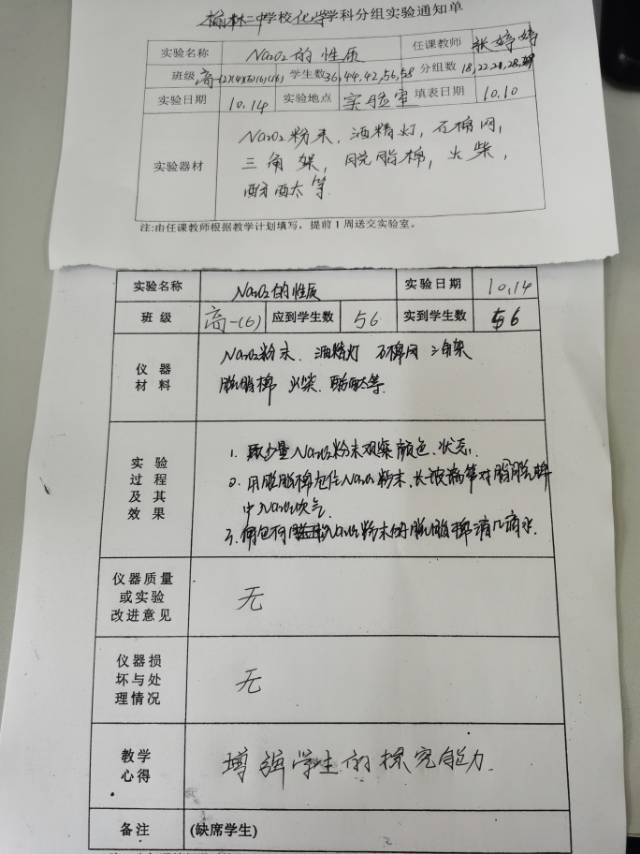 榆林二中学校化学学科分组实验通知单
实验名称 Na2O2的性质 任课教师 张婷婷
班级 高一(2)(4)(5)(6)(16) 学生数 36,44,42,56,58 分组数 18,22,21,28,
实验日期 10.14 实验地点 实验室 填表日期 10.10
实验器材
Na2O2粉末,酒精灯,石棉网,
三角架,脱脂棉,火柴,
酚酞等
注:由任课教师根据教学计划填写,提前1周送交实验室。
实验名称 Na2O2的性质 实验日期 10.14
班级 高一(6) 应到学生数 56 实到学生数 56
仪器
材料
Na2O2粉末、酒精灯 石棉网 三角架
脱脂棉 火柴、酚酞等
实验
过程
及其
效果
1. 取少量Na2O2粉末观察颜色、状态.
2. 用脱脂棉包住Na2O2粉末、长玻璃管对脂脱棉
中Na2O2吹气
3. 向包有Na2O2粉末的脱脂棉滴几滴水
仪器质量
或实验
改进意见
无
仪器损
坏与处
理情况
无
教学
心得
增强学生的探究能力.
备注 (缺席学生)